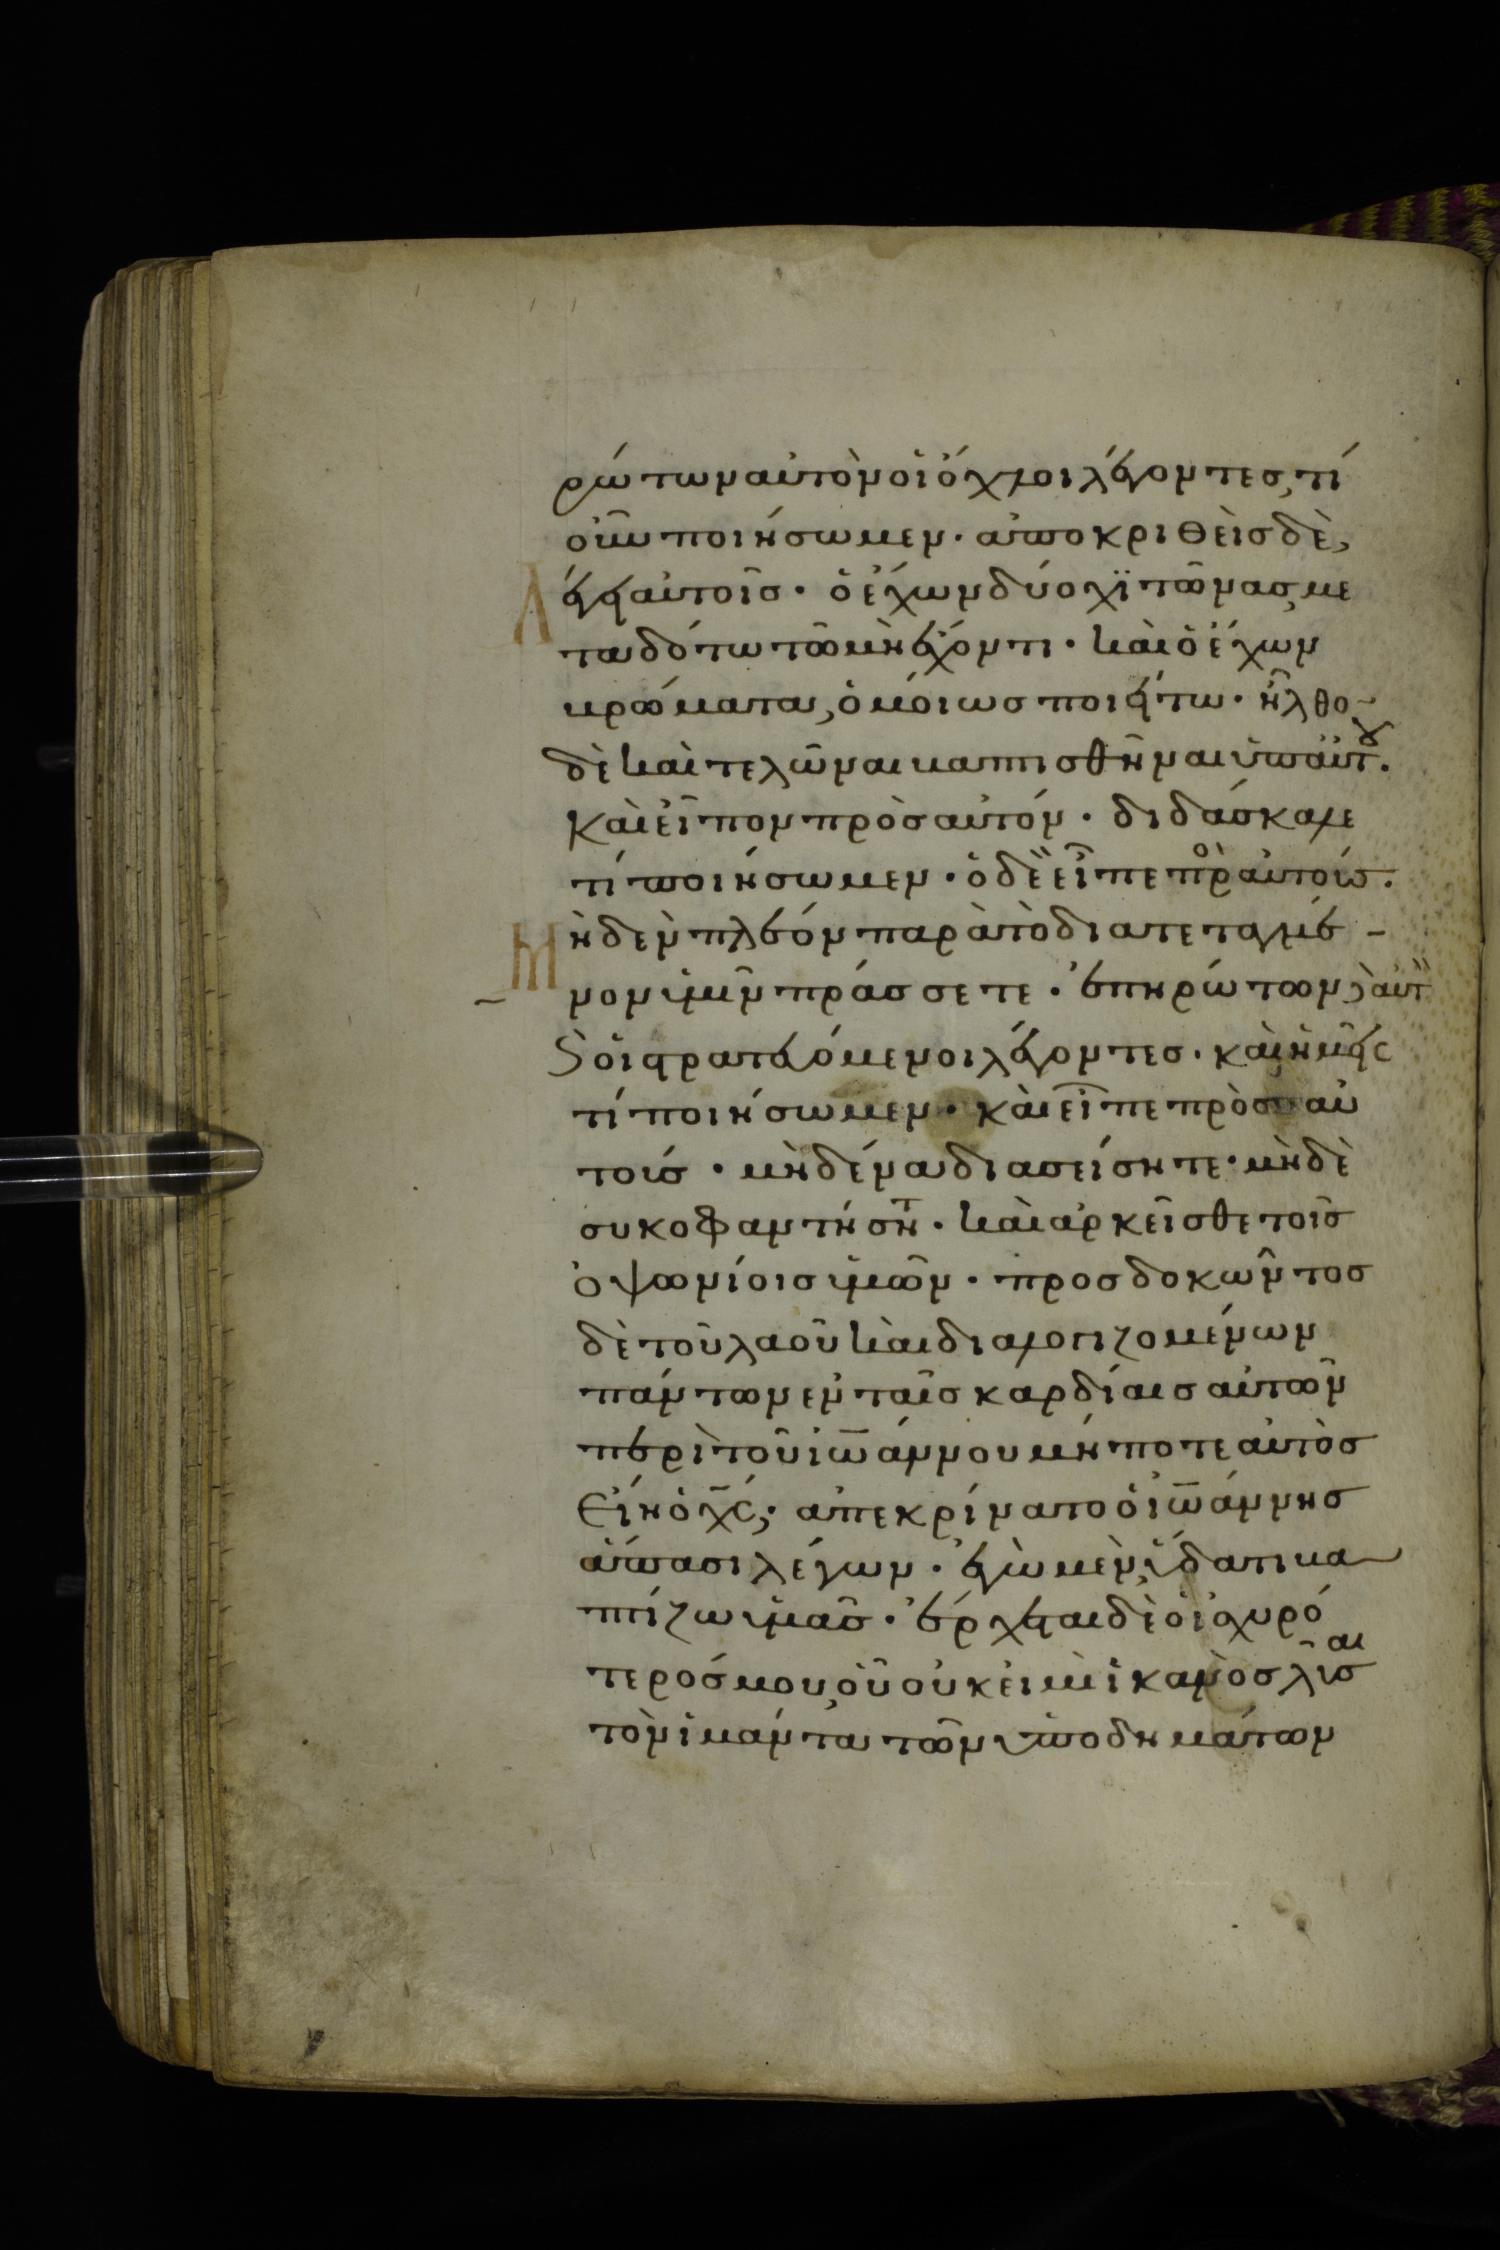 ρώτων αὐτὸν οἱ ὄχλοι λέγοντες, τί
οὖν ποιήσωμεν· ἀποκριθεὶς δὲ,
Λέγει αὐτοῖς· ὁ ἔχων δύο χϊτῶνας, με
ταδότω τῶ μὴ ἔχοντι· καὶ ὁ ἔχων
βρώματα, ὁμοίως ποιείτω· ἦλθο̅
δὲ καὶ τελῶναι βαπτισθῆναι ὑπ αὐτου.
Καὶ εἶπον πρὸς αὐτόν· διδάσκαλε
τί ποιήσωμεν· ὁ δὲ εἶπε πρὸ αὐτούσ.
Μηδὲν πλέον παρὰ τὸ διατεταγμέ-
νον ὑμῖν πράσσετε· ἐπηρώτων δὲ αὐτ
ϛ οἱ στρατευόμενοι λέγοντες· καὶ ἡμεῖς
τί ποιήσωμεν· καὶ εἶπε πρὸς αὐ
τούσ· μηδένα διασείσητε· μηδὲ
συκοφαντήσητ· καὶ ἀρκεῖσθε τοῖς
ὀψωνίοις ὑμῶν· προσδοκῶντος
δὲ τοῦ λαοῦ καὶ διαλογιζομένων
πάντων ἐν ταῖς καρδίαις αὐτῶν
περὶ τοῦ ἰω̅άννου μήποτε αὐτὸς
Εἴη ὁ χ̅ς· ἀπεκρίνατο ὁ ἰω̅άννης
ἅπασι λέγων· ἐγὼ μὲν ὕδατι βα
πτίζω ὑμᾶς· ἔρχεται δὲ ὁ ἰσχυρό
τερός μου, οὗ οὐκ εἰμὶ ἱκανὸς λῦσαι
τὸν ἱμάντα τῶν ὑποδημάτων